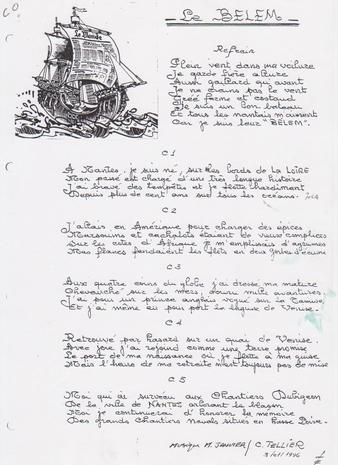 60
Le BELEM
Le Monde
Refrain
Plein vent dans ma voilure
Je garde fière allure
Aussi gaillard qu'avant
Je ne crains pas le vent
Gréé ferme et costaud
Je suis un bon bateau
Et tous les nantais m'aiment
Car je suis leur "BELEM".
C 1
A Nantes, je suis né, sur les bords de la LOIRE
Mon passé est chargé d'une très longue histoire
J'ai bravé des tempêtes et je flotte hardiment
Depuis plus de cent ans sur tous les océans.
C 2
J'allais en Amérique pour charger des épices
Marsouins et cachalots étaient de vieux complices
Sur les côtes d'Afrique je m'emplissais d'agrumes
Mes flancs fendaient les flots en deux gerbes d'écume
C 3
Aux quatre coins du globe j'ai dressé ma mature
Chevauché sur les mers, connu mille aventures
J'ai pour un prince anglais vogué sur la Tamise
Et j'ai même eu pour port la lagune de Venise.
C 4
Retrouvé par hasard sur un quai de Venise
Avec joie j'ai rejoint comme une terre promise
Le port de ma naissance où je flotte à ma guise
Mais l'heure de ma retraite n'est toujours pas de mise
C 5
Moi qui ai survécu aux Chantiers Dubigeon
De la ville de NANTES arborant le blason
Moi je continuerai d'honorer la mémoire
Des grands Chantiers navals situés en Basse Loire.
Musique M. JANVIER / C. TELLIER
1996